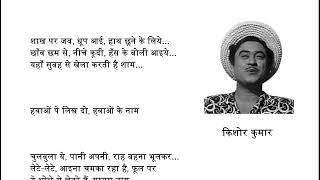 शाख़ पर जब, धूप आई, हाथ छूने के लिये...
छाँव छम से, नीचे कूदी, हँस के बोली आइये...
यहाँ सुबह से खेला करती है शाम...
हवाओं पे लिख दो, हवाओं के नाम
किशोर कुमार
चुलबुला ये, पानी अपनी, राह बहना भूलकर...
लेटे-लेटे, आइना चमका रहा है, फूल पर